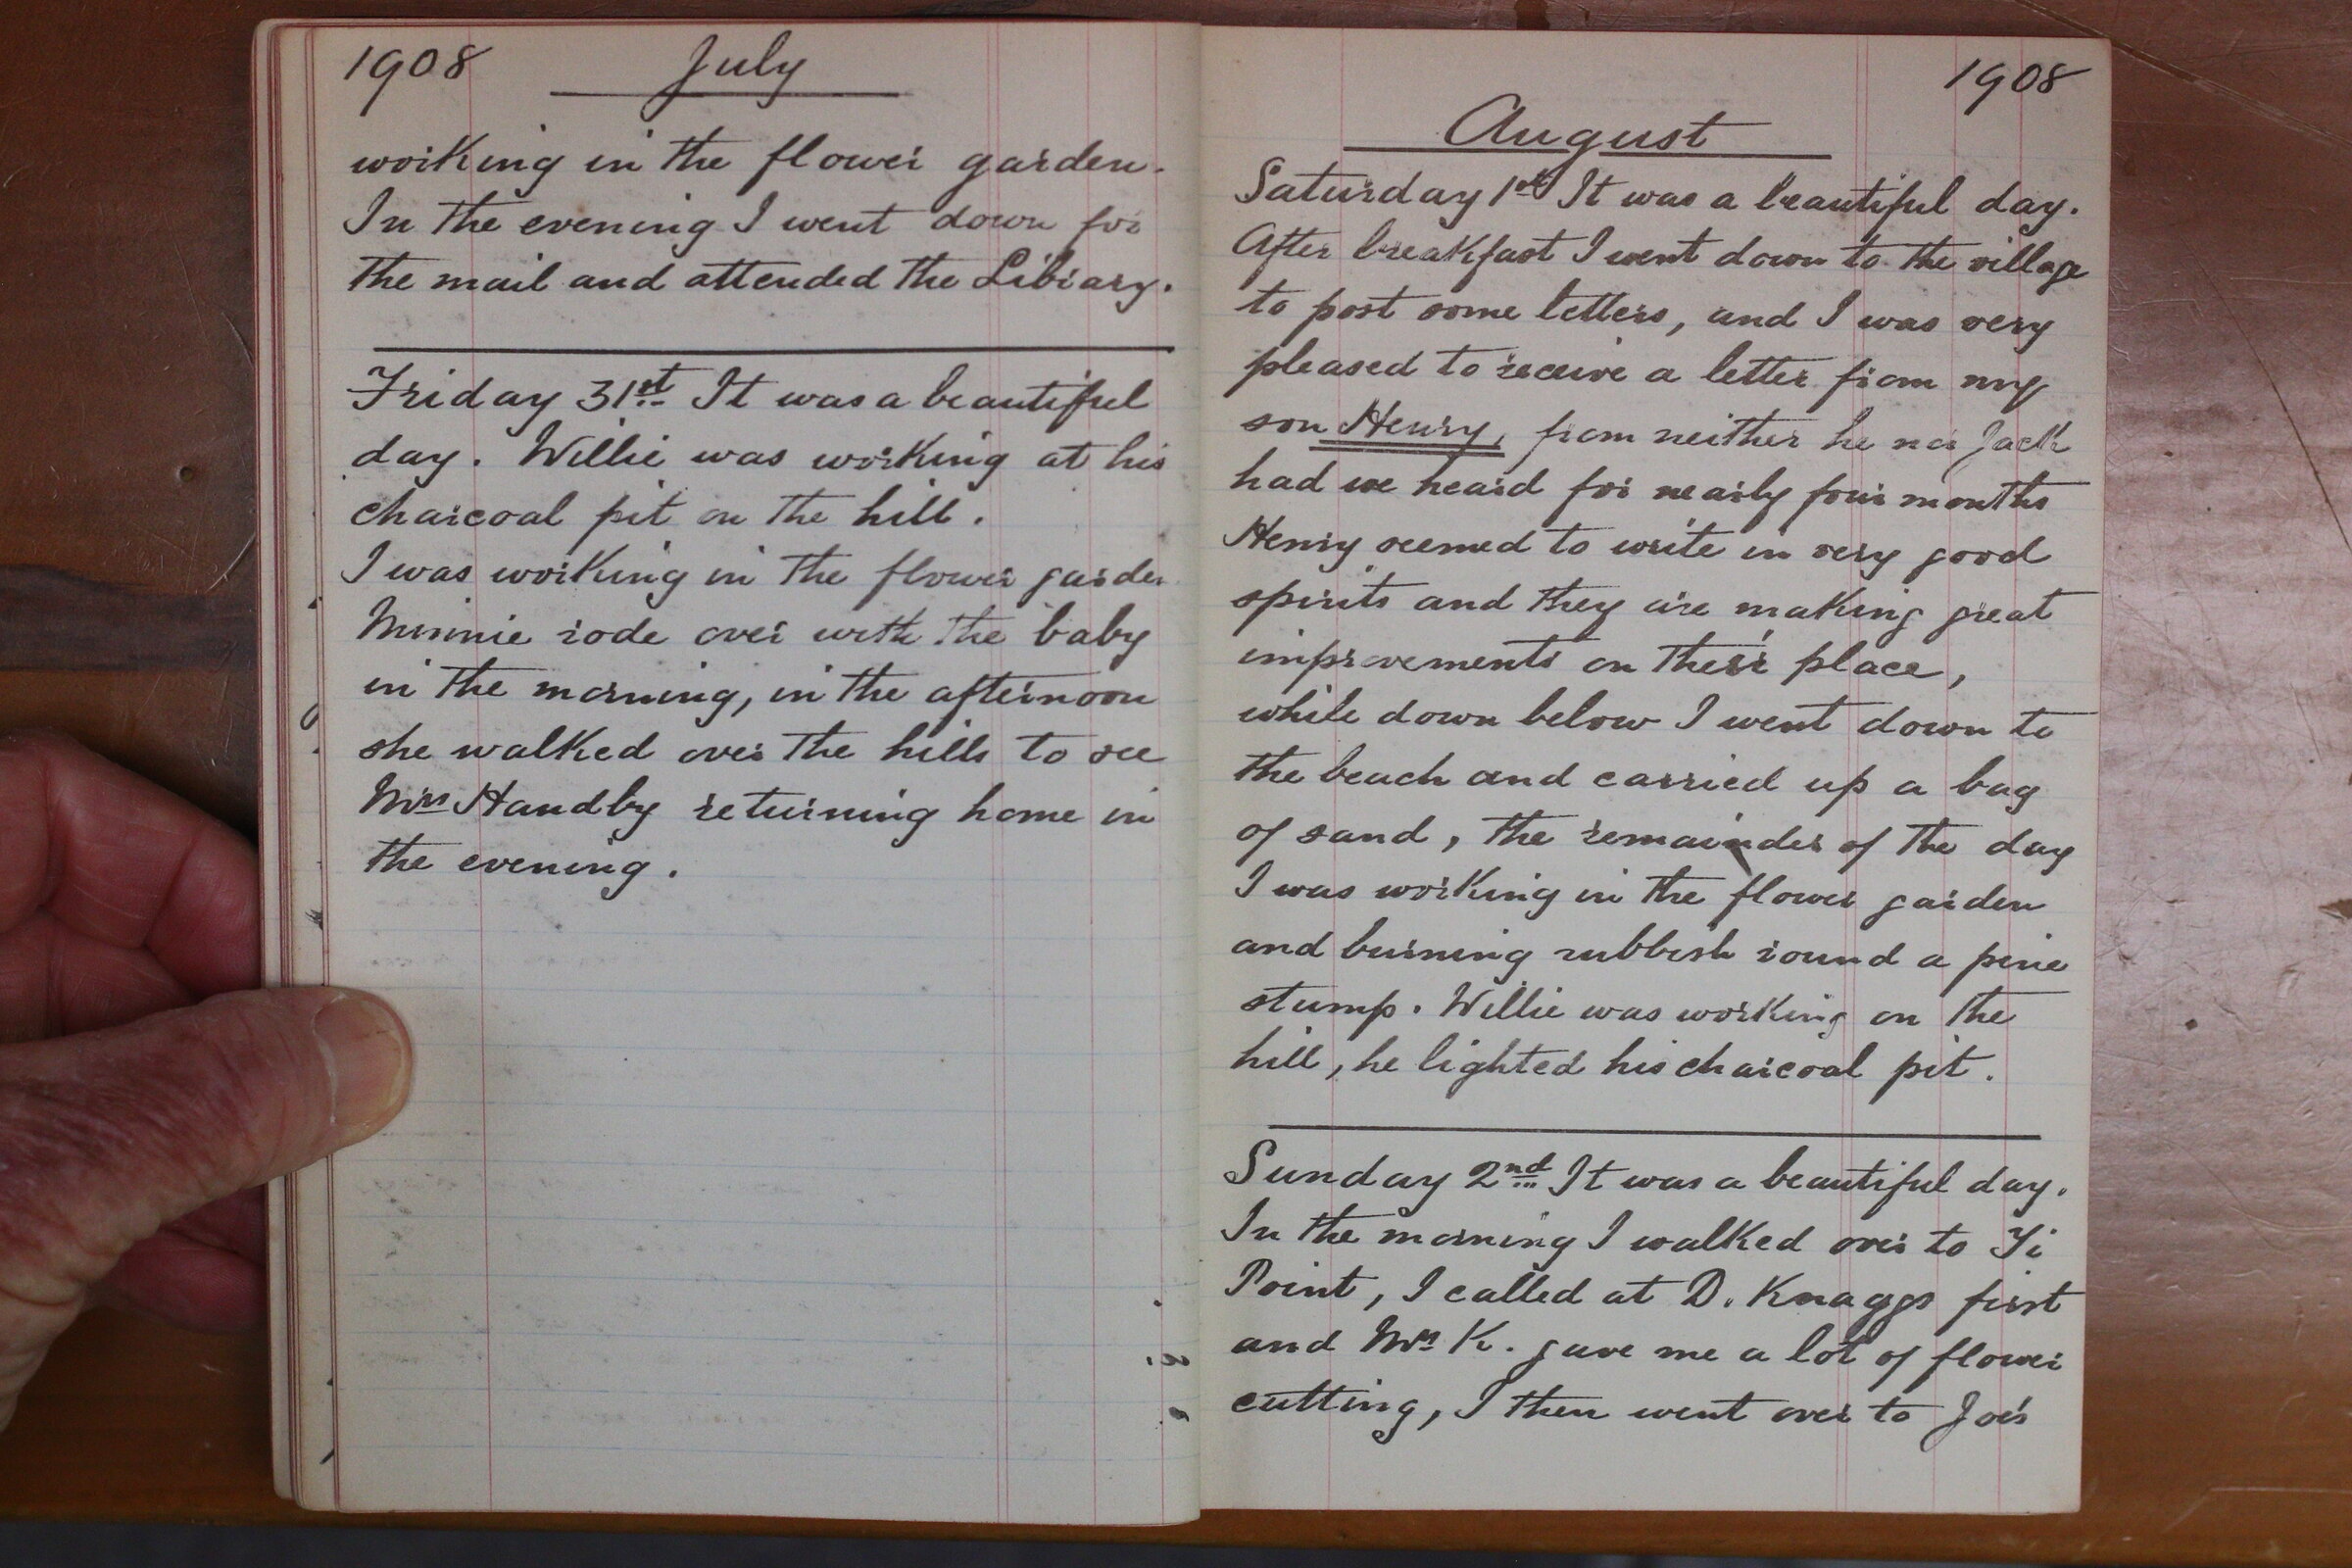 1908 July
working in the flower garden.
In the evening I went down for
the mail and attended the Library.
Friday 31st It was a beautiful
day. Willie was working at his
charcoal pit on the hill.
I was working in the flower garden
Minnie rode over with the baby
in the morning, in the afternoon
she walked over the hills to see
Mrs Handby returning home in
the evening.
1908
August
Saturday 1st It was a beautiful day.
After breakfast I went down to the village
to post some letters, and I was very
pleased to receive a letter from my
son Henry, from neither he nor Jack
had we heard for nearly four months
Henry seemed to write in very good
spirits and they are making great
improvements on their place,
while down below I went down to
the beach and carried up a bag
of sand, the remainder of the day
I was working in the flower garden
and burning rubbish round a pine
stump. Willie was working on the
hill, he lighted his charcoal pit.
Sunday 2nd It was a beautiful day.
In the morning I walked over to Ti
Point, I called at D. Knaggs first
and Mrs K. gave me a lot of flower
cutting, I then went over to Joe's